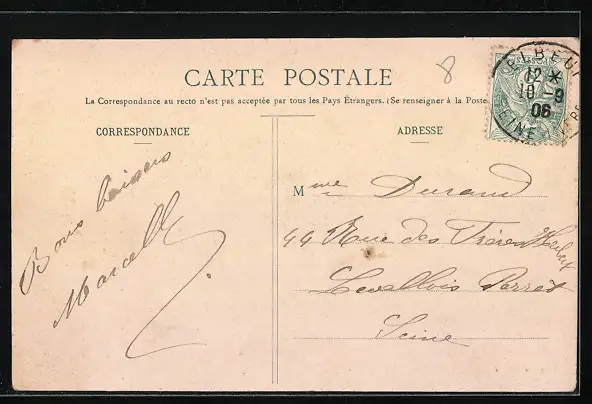 8
CARTE POSTALE
La Correspondance au recto n'est pas acceptée par tous les Pays Étrangers. (Se renseigner à la Poste
CORRESPONDANCE
ADRESSE
Bons baisers
Marcelle
Mme Durand
44 Rue des Frères
Levallois Perret
Seine
ELBEUF
12 *
10 - 9
06
SEINE